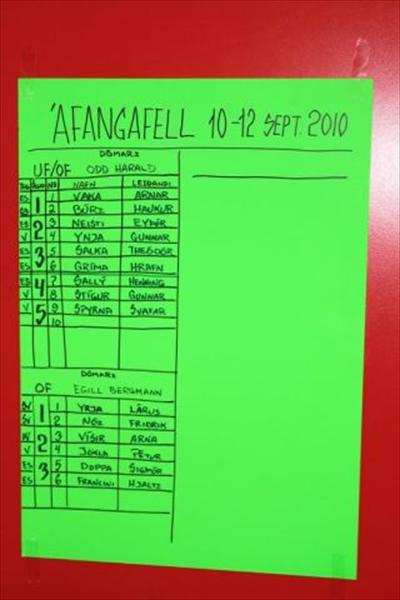 ÁFANGAFELL 10-12 SEPT. 2010
DÓMARI
UF/OF ODD HARALD
NR NAFN LEIÐANDI
ES 1 1 VAKA ARNAR
2 BÚRI HAUKUR
ES 2 3 NEISTI EYÞÓR
V 4 YNJA GUNNAR
ES 3 5 SALKA THEODÓR
ES 6 GRÍMA HRAFN
ES 4 7 SALLÝ HENNING
V 8 STÍGUR GUNNAR
V 5 9 SPYRNA SVAFAR
10
DÓMARI
OF EGILL BERGMANN
SV 1 1 YRJA LÁRUS
SV 2 NÓI FRIÐRIK
2 3 VÍSIR ARNA
V 4 JÖKLA PÉTUR
ES 3 5 DOPPA SIGMÓR
ES 6 FRANCINI HJALTI